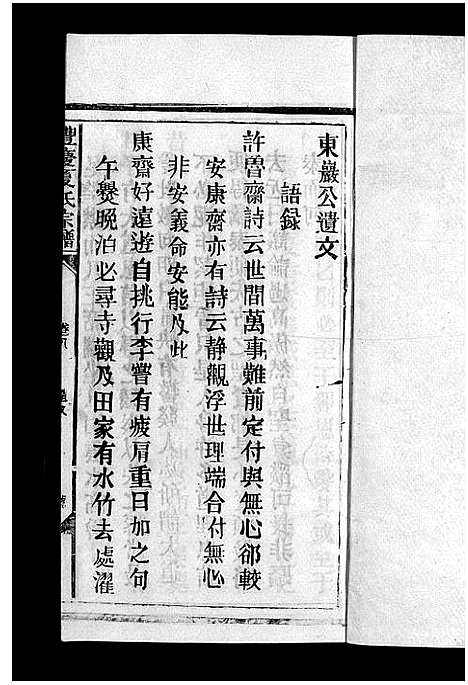 東巖公遺文
語録
許魯齋詩云世間萬事難前定付與無心郤較
安康齋亦有詩云静觀浮世理端合付無心
非安義命安能及此
康齋好遠遊自挑行李嘗有疲肩重日加之句
午爨晚泊必尋寺觀及田家有水竹去處濯
豐慶夏氏宗譜
遺文